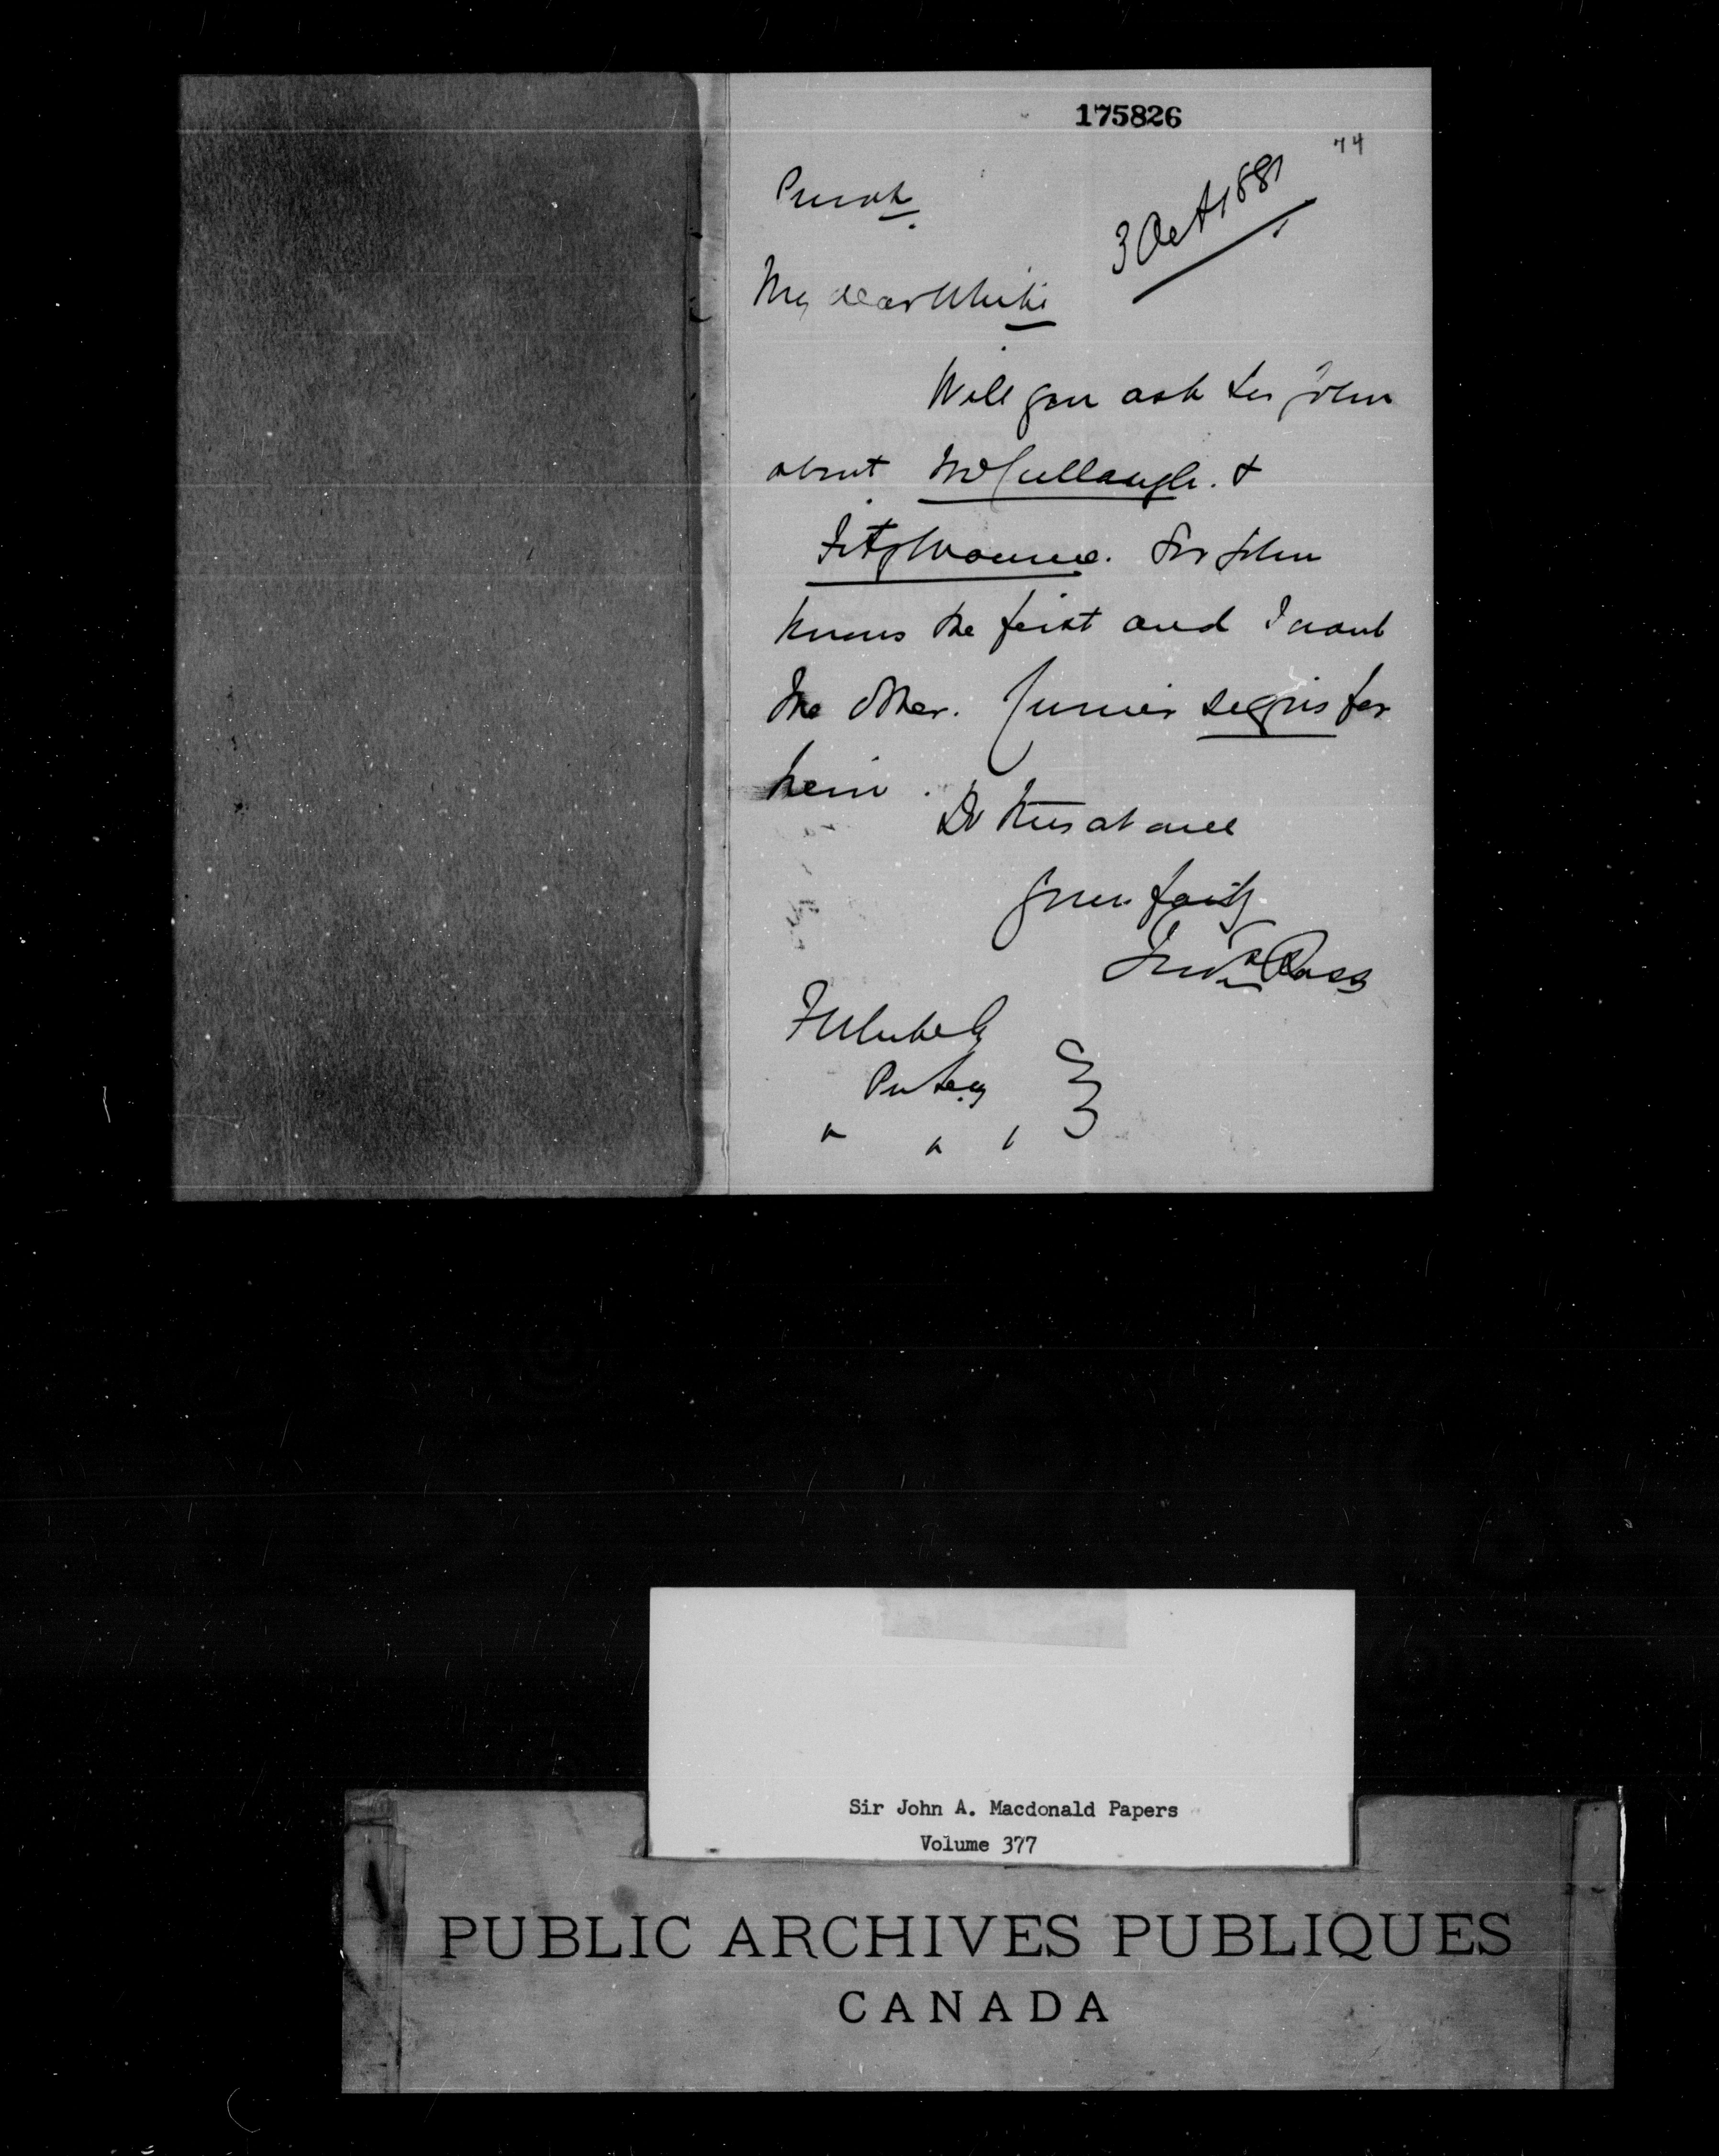 175826
74
Private
3 Oct 1881
My dear White
Will you ask Sir John
about McCullaugh. &
Fitz
Sir John
knows the first and I want
the other. Currier signs for
him.
Do this at once
Yours faithy
Ross
F White Esq
Pr Secy
" " "
Sir John A. Macdonald Papers
Volume 377
PUBLIC ARCHIVES PUBLIQUES
CANADA